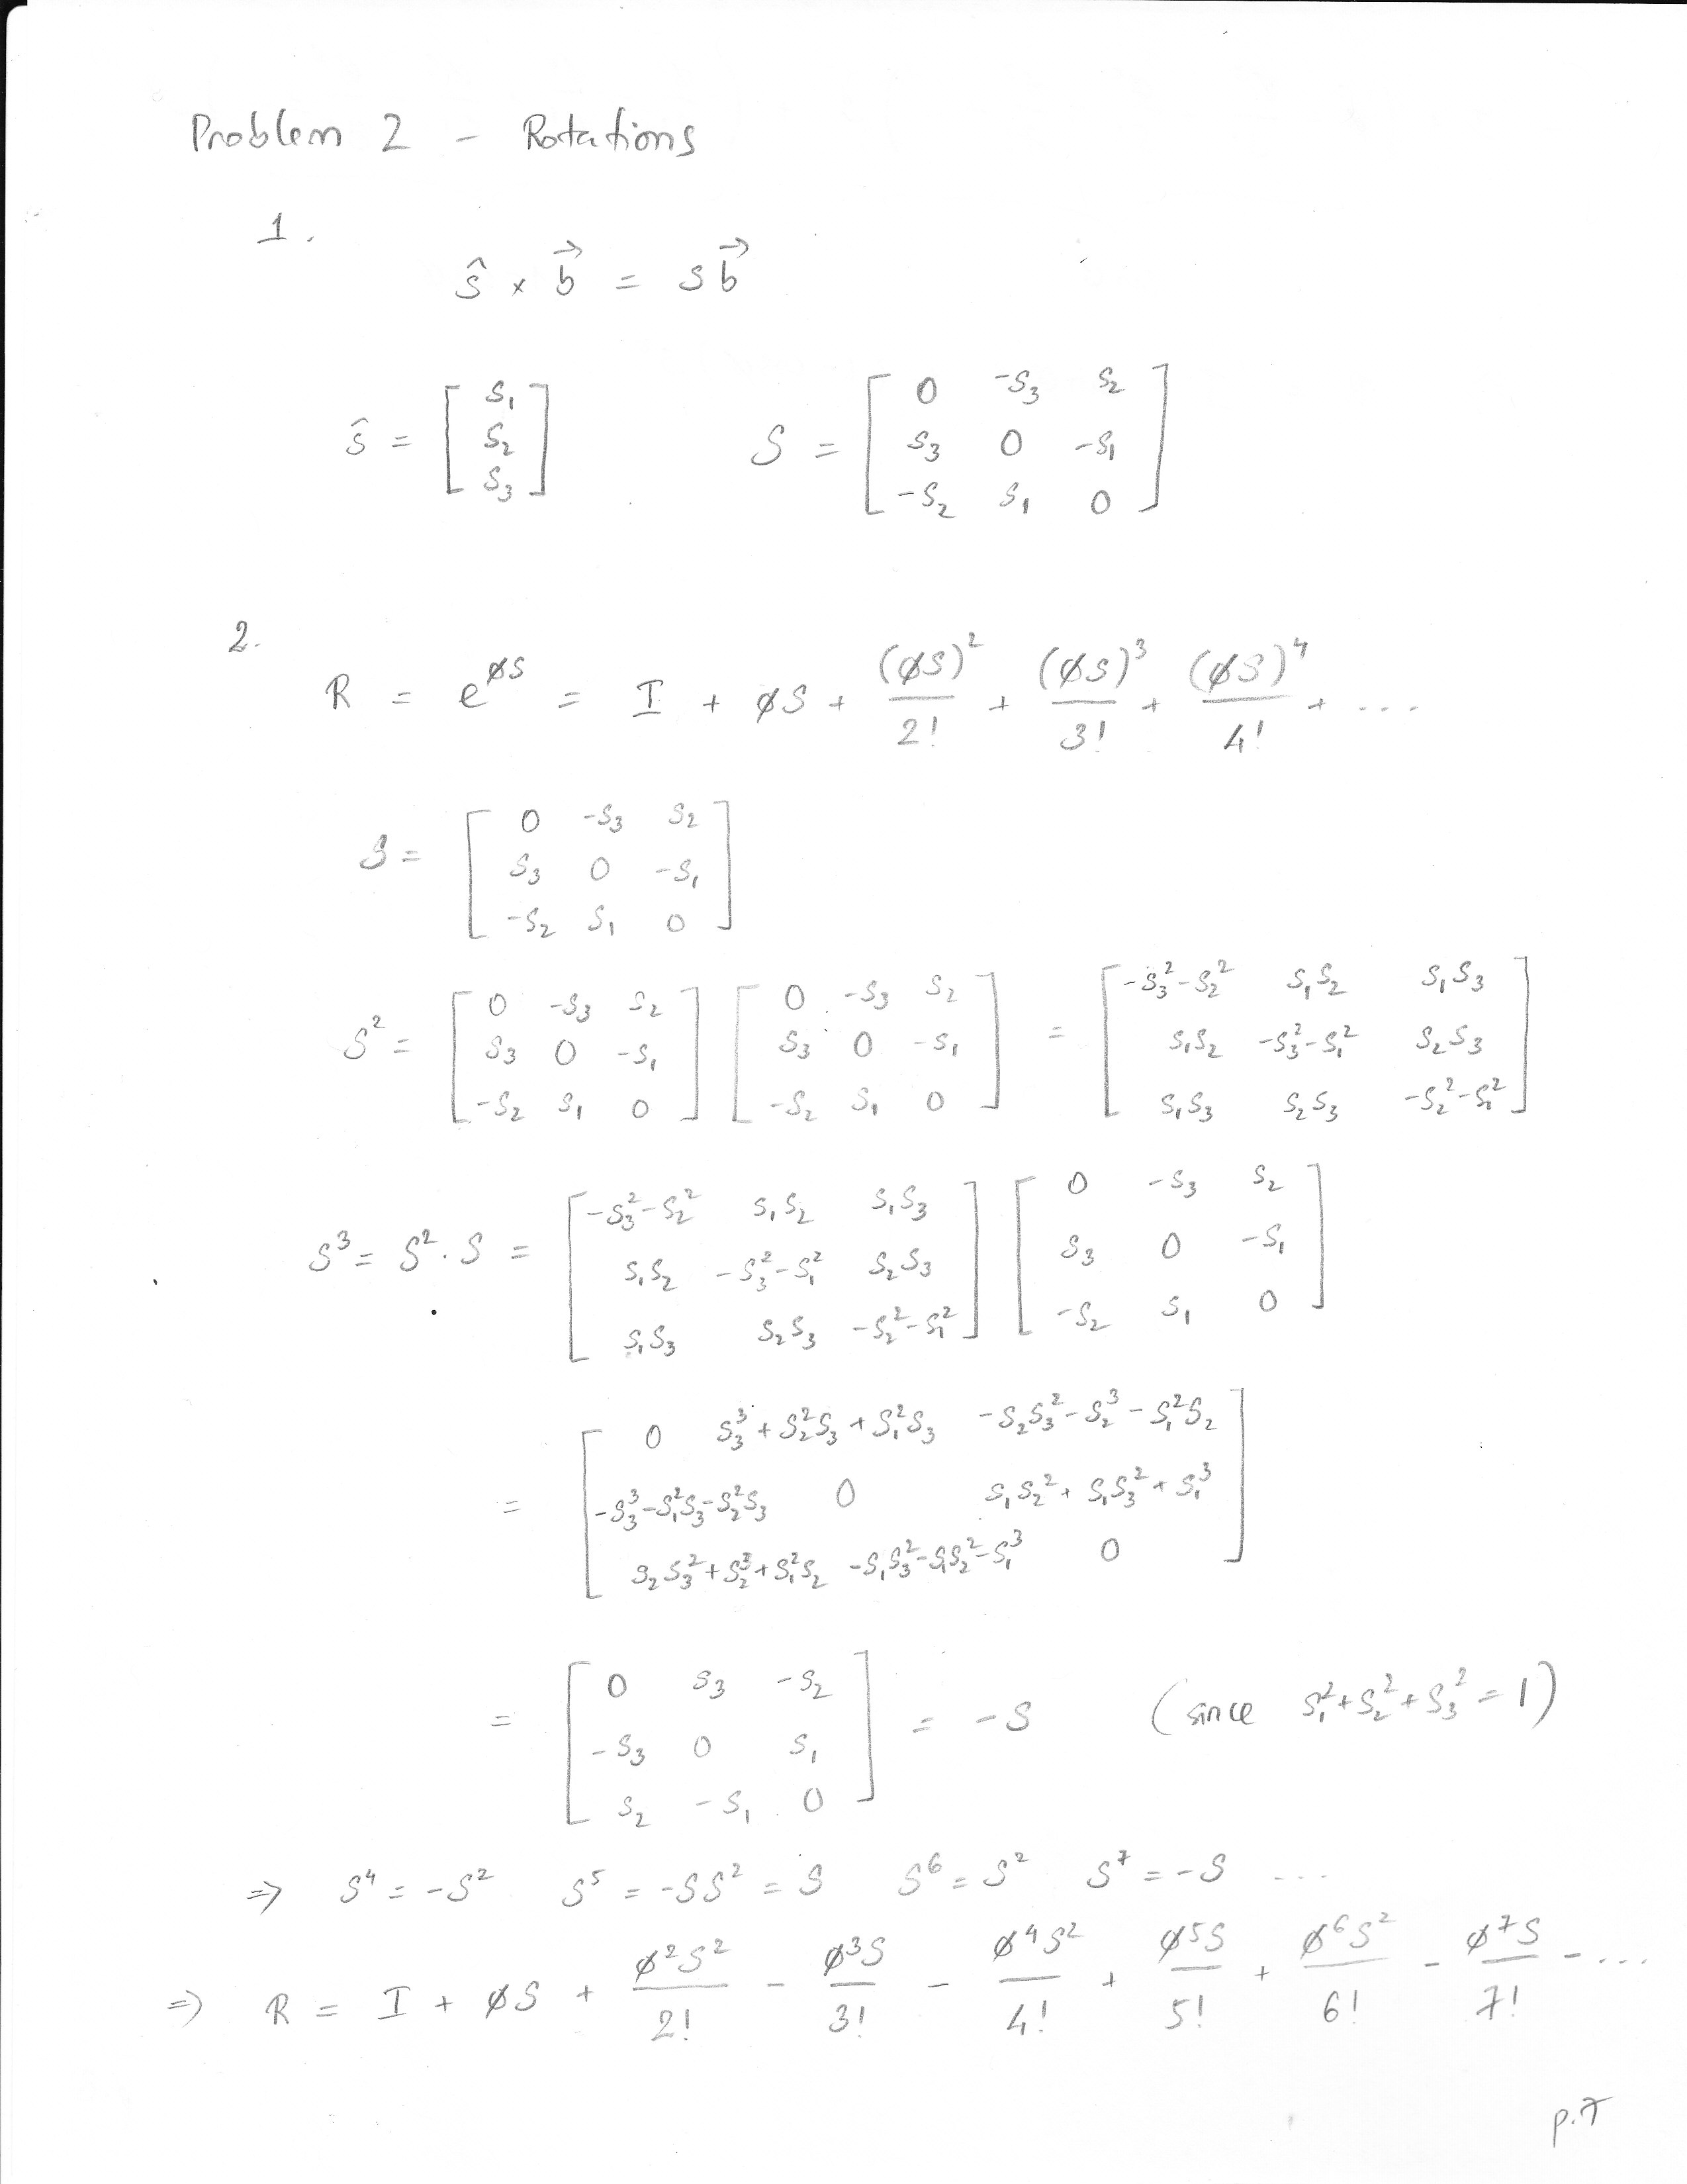 Problem 2 - Rotations
1.
ŝ × b⃗ = S b⃗
ŝ = [ s₁ s₂ s₃ ] S = [ 0 -s₃ s₂
s₃ 0 -s₁
-s₂ s₁ 0 ]
2.
R = e^(φS) = I + φS + (φS)²/2! + (φS)³/3! + (φS)⁴/4! + ...
S = [ 0 -s₃ s₂
s₃ 0 -s₁
-s₂ s₁ 0 ]
S² = [ 0 -s₃ s₂ ] [ 0 -s₃ s₂ ] = [ -s₃²-s₂² s₁s₂ s₁s₃ ]
[ s₃ 0 -s₁ ] [ s₃ 0 -s₁ ] [ s₁s₂ -s₃²-s₁² s₂s₃ ]
[ -s₂ s₁ 0 ] [ -s₂ s₁ 0 ] [ s₁s₃ s₂s₃ -s₂²-s₁² ]
S³ = S² · S = [ -s₃²-s₂² s₁s₂ s₁s₃ ] [ 0 -s₃ s₂ ]
[ s₁s₂ -s₃²-s₁² s₂s₃ ] [ s₃ 0 -s₁ ]
[ s₁s₃ s₂s₃ -s₂²-s₁² ] [ -s₂ s₁ 0 ]
= [ 0 s₃³+s₂²s₃+s₁²s₃ -s₂s₃²-s₂³-s₁²s₂ ]
[ -s₃³-s₁²s₃-s₂²s₃ 0 s₁s₂²+s₁s₃²+s₁³ ]
[ s₂s₃²+s₂³+s₁²s₂ -s₁s₃²-s₁s₂²-s₁³ 0 ]
= [ 0 s₃ -s₂
-s₃ 0 s₁
s₂ -s₁ 0 ] = -S (since s₁²+s₂²+s₃² = 1)
⇒ S⁴ = -S² S⁵ = -SS² = S S⁶ = S² S⁷ = -S ...
⇒ R = I + φS + φ²S²/2! - φ³S/3! - φ⁴S²/4! + φ⁵S/5! + φ⁶S²/6! - φ⁷S/7! - ...
p.7